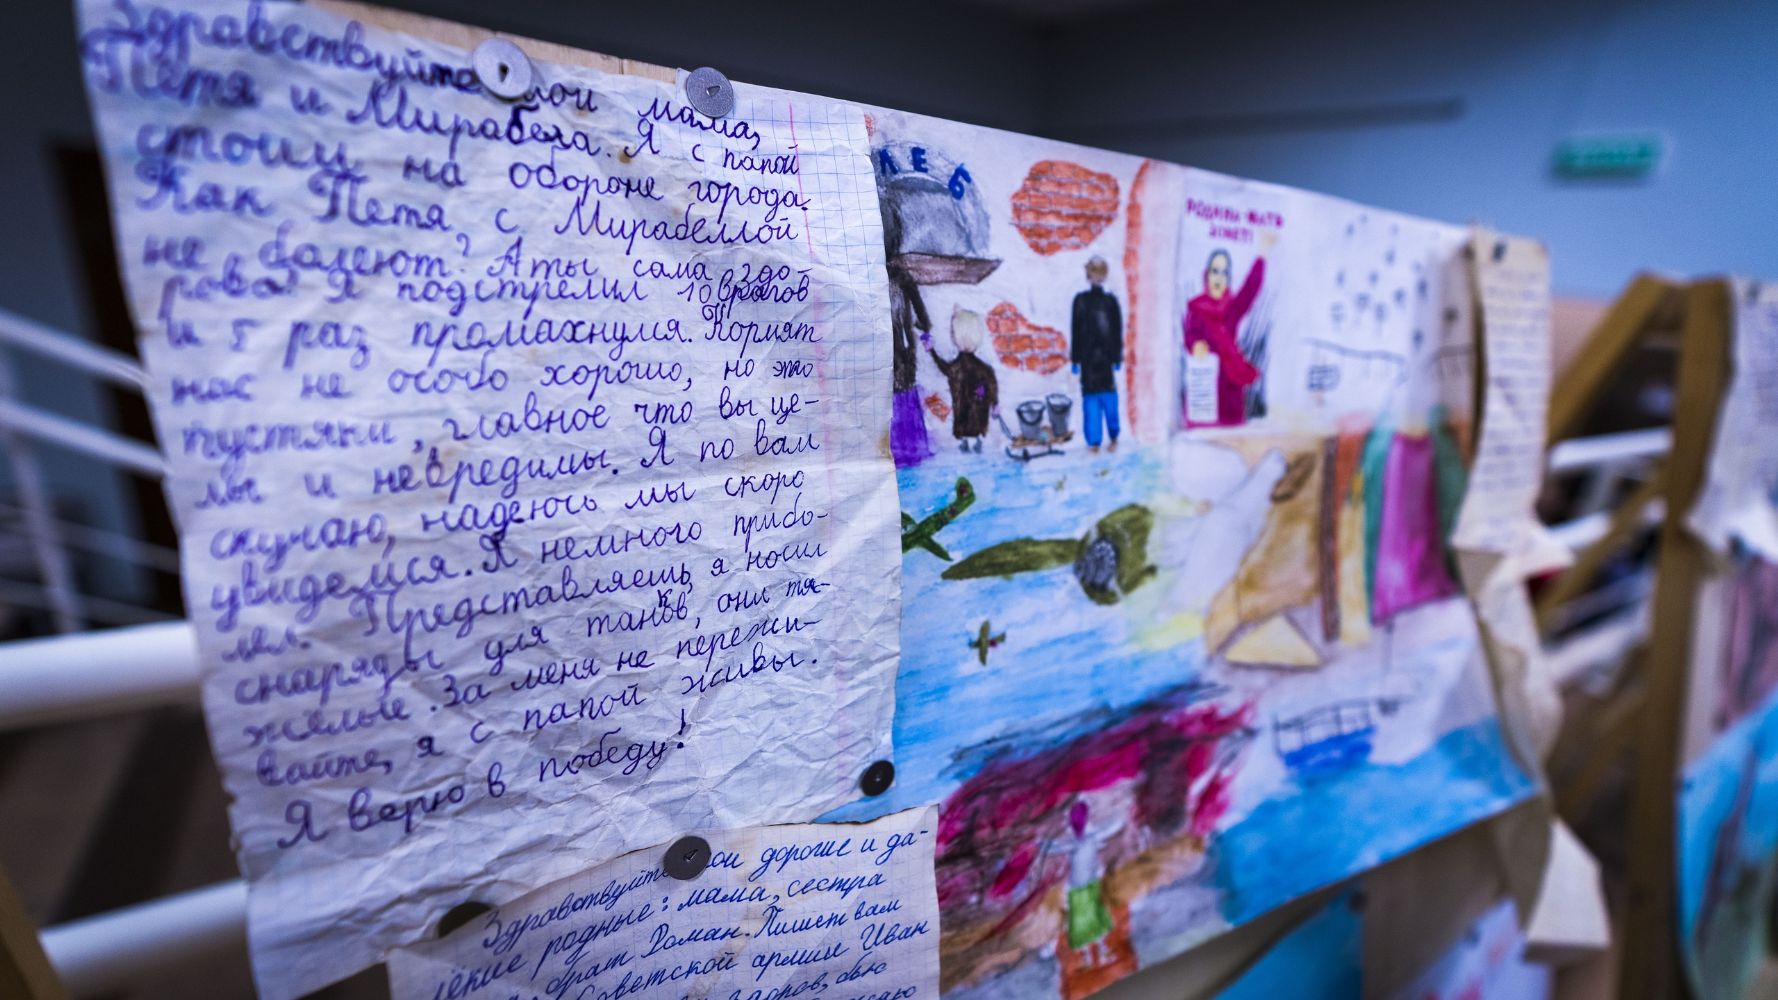 Здравствуйте мои мама,
Петя и Мирабела. Я с папой
стоим на обороне города.
Как Петя, с Мирабеллой
не болеют? А ты сама здо-
рова? Я подстрелил 10 врагов
и 5 раз промахнулся. Кормят
нас не особо хорошо, но это
пустяки, главное что вы це-
лы и невредимы. Я по вам
скучаю, надеюсь мы скоро
увидемся. Я немного прибо-
лел. Представляешь, я носил
снаряды для танков, они тя-
жёлые. За меня не пережи-
вайте, я с папой живы.
Я верю в победу!
Здравствуйте мои дорогие и да-
лёкие родные: мама, сестра
брат Роман. Пишет вам
Советской армии Иван
бью
ЛЕБ
РОДИНА-МАТЬ
ЗОВЕТ!